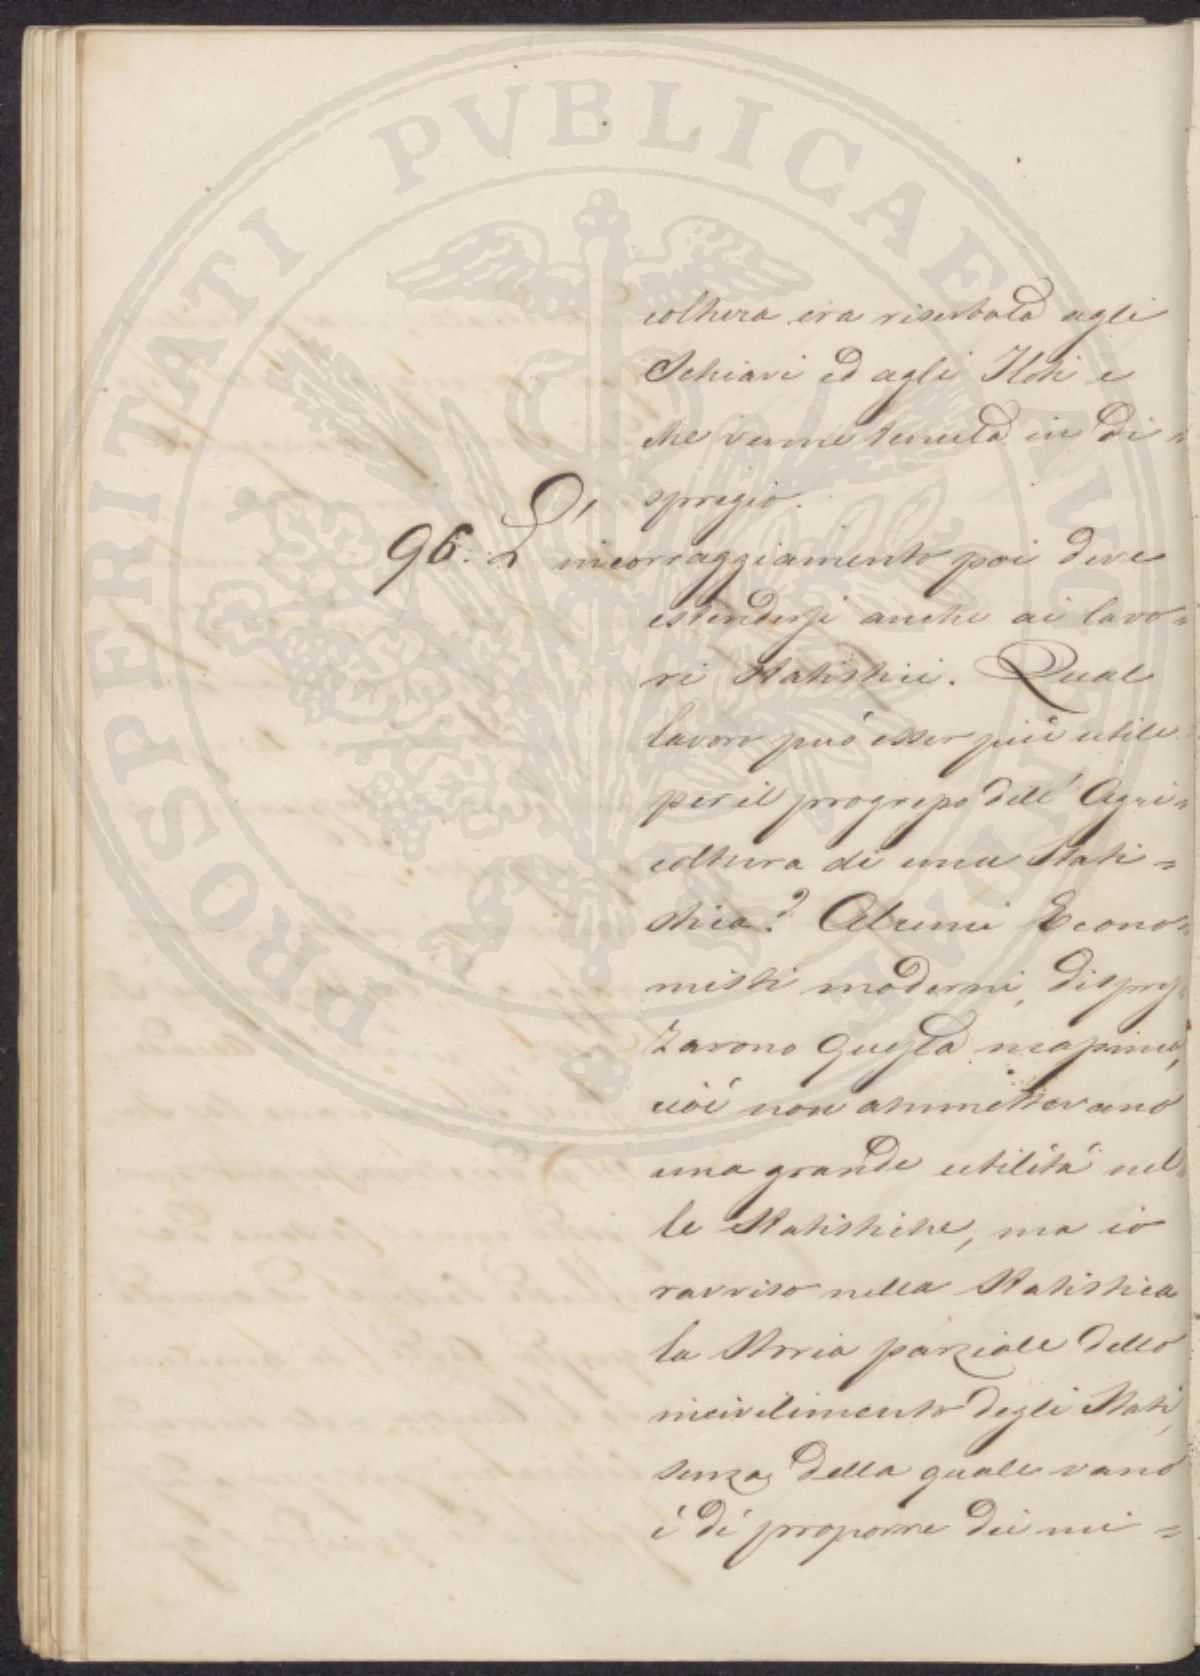 PROSPERITATI PVBLICAE AVGENDAE
coltura era riserbata agli
Schiavi ed agli Iloti e
che venne tenuta in di=
spregio.
96. L' incorraggiamento poi deve
estendersi anche ai lavo=
ri statistici. Qual
lavoro può esser più utile
per il progresso dell' Agri=
coltura di una stati=
stica? Alcuni Econo=
misti moderni, disprez=
zarono questa massima,
cioè non ammettevano
una grande utilità nel=
le statistiche, ma io
ravviso nella statistica
la storia parziale dello
incivilimento degli stati,
senza della quale vano
è di proporre dei mi=